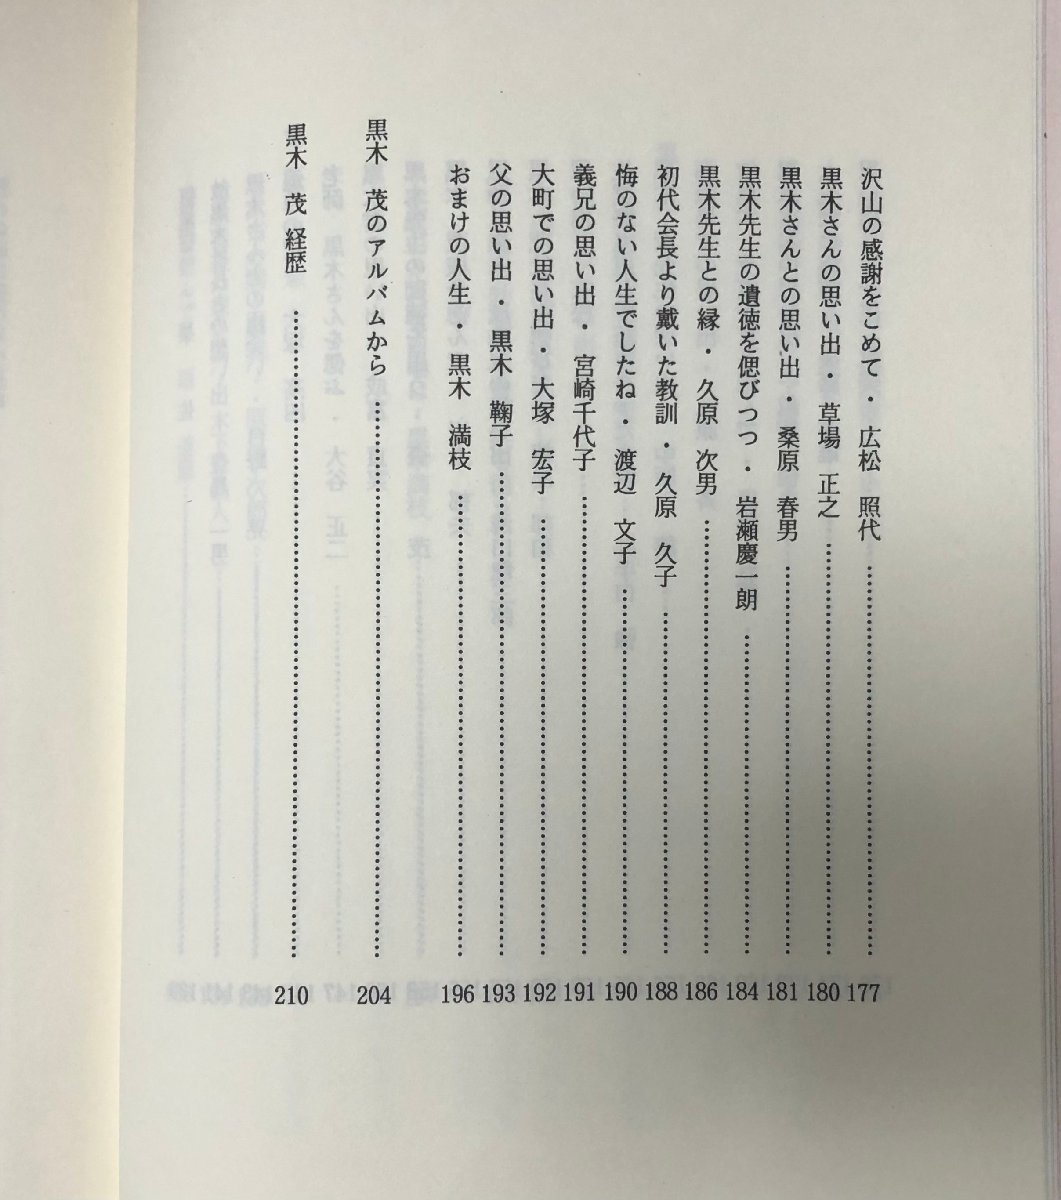 沢山の感謝をこめて・広松 照代……177
黒木さんの思い出・草場 正之……180
黒木さんとの思い出・桑原 春男……181
黒木先生の遺徳を偲びつつ・岩瀬慶一朗……184
黒木先生との縁・久原 次男……186
初代会長より戴いた教訓・久原 久子……188
悔のない人生でしたね・渡辺 文子……190
義兄の思い出・宮崎千代子……191
大町での思い出・大塚 宏子……192
父の思い出・黒木 鞠子……193
おまけの人生・黒木 満枝……196
黒木 茂のアルバムから……204
黒木 茂 経歴……210